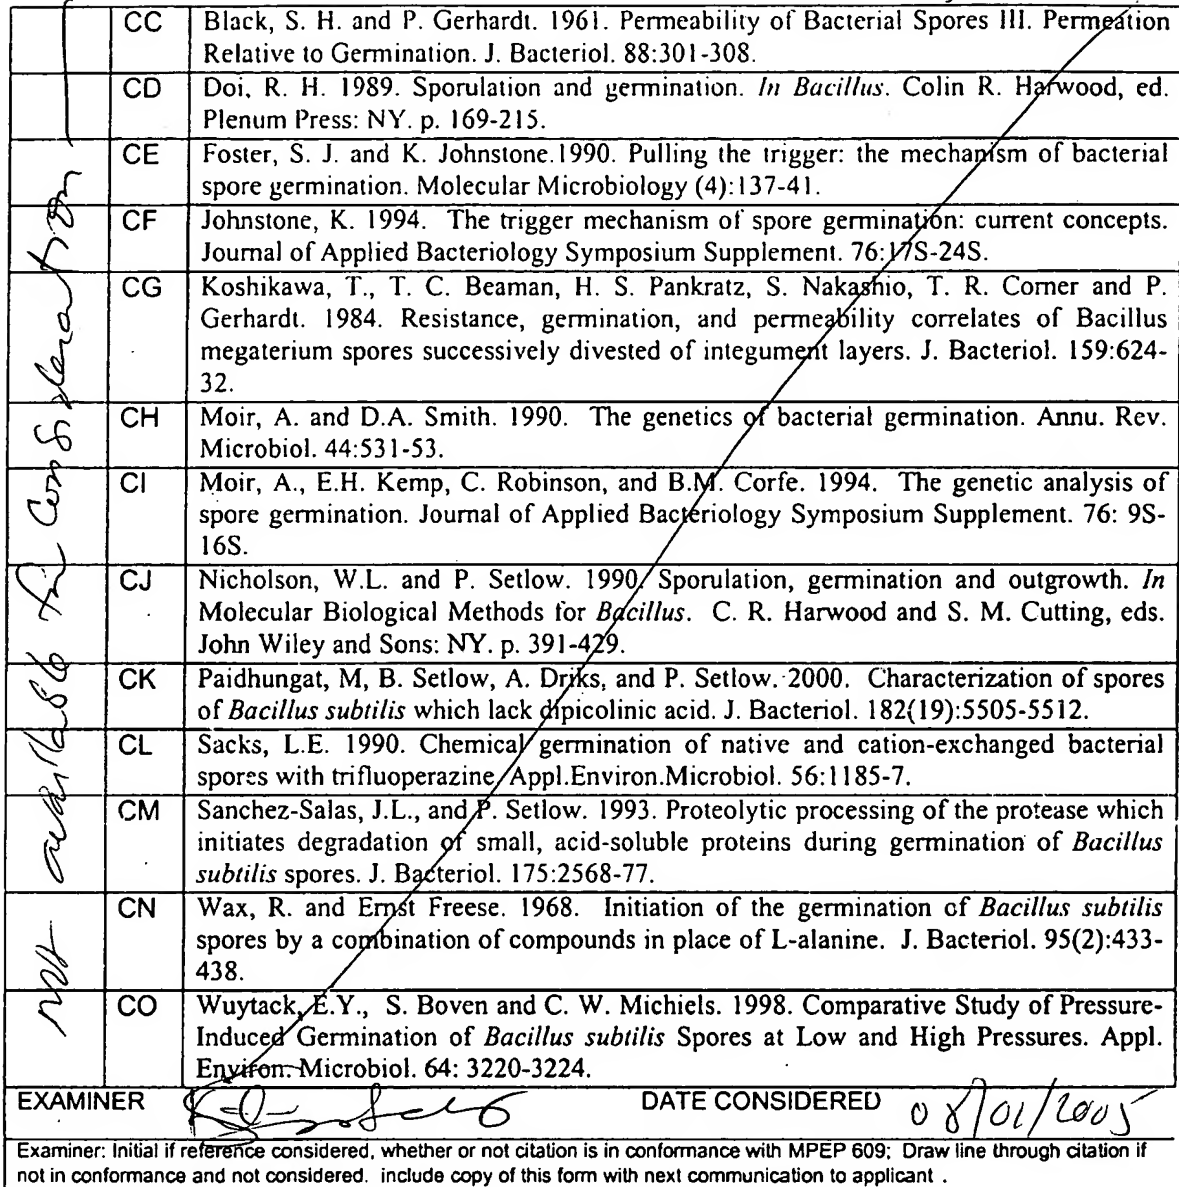 CC Black, S. H. and P. Gerhardt. 1961. Permeability of Bacterial Spores III. Permeation
Relative to Germination. J. Bacteriol. 88:301-308.
CD Doi, R. H. 1989. Sporulation and germination. In Bacillus. Colin R. Harwood, ed.
Plenum Press: NY. p. 169-215.
CE Foster, S. J. and K. Johnstone.1990. Pulling the trigger: the mechanism of bacterial
spore germination. Molecular Microbiology (4):137-41.
CF Johnstone, K. 1994. The trigger mechanism of spore germination: current concepts.
Journal of Applied Bacteriology Symposium Supplement. 76:17S-24S.
CG Koshikawa, T., T. C. Beaman, H. S. Pankratz, S. Nakashio, T. R. Corner and P.
Gerhardt. 1984. Resistance, germination, and permeability correlates of Bacillus
megaterium spores successively divested of integument layers. J. Bacteriol. 159:624-
32.
CH Moir, A. and D.A. Smith. 1990. The genetics of bacterial germination. Annu. Rev.
Microbiol. 44:531-53.
CI Moir, A., E.H. Kemp, C. Robinson, and B.M. Corfe. 1994. The genetic analysis of
spore germination. Journal of Applied Bacteriology Symposium Supplement. 76: 9S-
16S.
CJ Nicholson, W.L. and P. Setlow. 1990. Sporulation, germination and outgrowth. In
Molecular Biological Methods for Bacillus. C. R. Harwood and S. M. Cutting, eds.
John Wiley and Sons: NY. p. 391-429.
CK Paidhungat, M, B. Setlow, A. Driks, and P. Setlow. 2000. Characterization of spores
of Bacillus subtilis which lack dipicolinic acid. J. Bacteriol. 182(19):5505-5512.
CL Sacks, L.E. 1990. Chemical germination of native and cation-exchanged bacterial
spores with trifluoperazine. Appl.Environ.Microbiol. 56:1185-7.
CM Sanchez-Salas, J.L., and P. Setlow. 1993. Proteolytic processing of the protease which
initiates degradation of small, acid-soluble proteins during germination of Bacillus
subtilis spores. J. Bacteriol. 175:2568-77.
CN Wax, R. and Ernst Freese. 1968. Initiation of the germination of Bacillus subtilis
spores by a combination of compounds in place of L-alanine. J. Bacteriol. 95(2):433-
438.
CO Wuytack, E.Y., S. Boven and C. W. Michiels. 1998. Comparative Study of Pressure-
Induced Germination of Bacillus subtilis Spores at Low and High Pressures. Appl.
Environ. Microbiol. 64: 3220-3224.
not available for Consideration
EXAMINER DATE CONSIDERED 08/01/2005
Examiner: Initial if reference considered, whether or not citation is in conformance with MPEP 609; Draw line through citation if
not in conformance and not considered. include copy of this form with next communication to applicant .